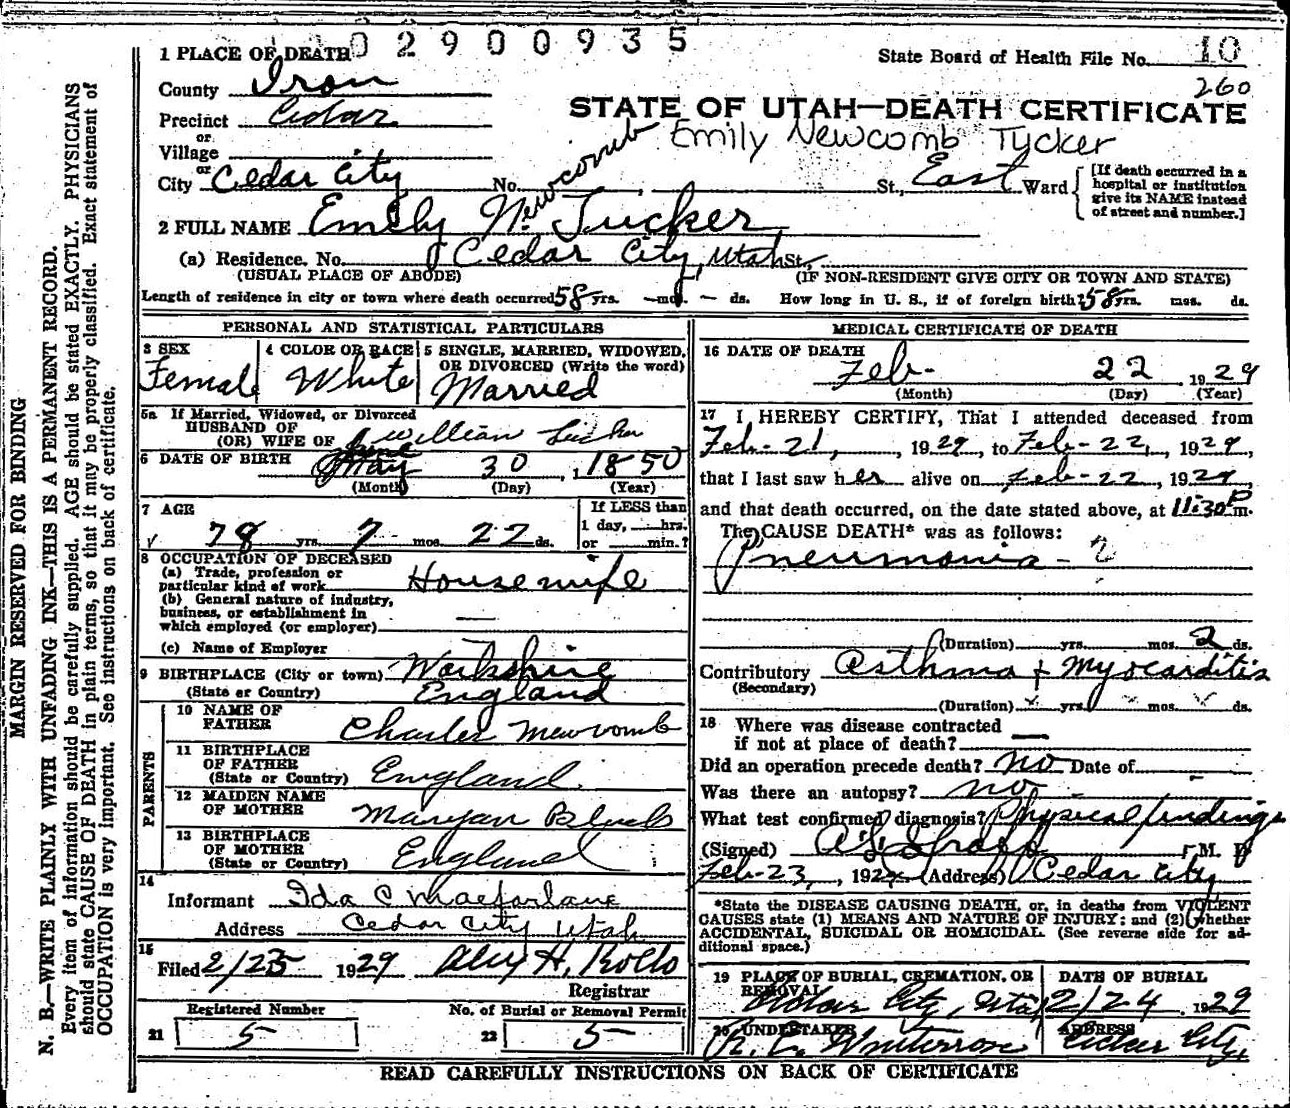 02900935
1 PLACE OF DEATH
State Board of Health File No. 10
260
County Iron
STATE OF UTAH—DEATH CERTIFICATE
Precinct Cedar
Emily Newcomb Tycker
or
Village
Newcomb
or
City Cedar City No. St., East Ward
[If death occurred in a
hospital or institution
give its NAME instead
of street and number.]
2 FULL NAME Emily N. Tucker
(a) Residence. No. Cedar City, Utah St.,
(USUAL PLACE OF ABODE) (IF NON-RESIDENT GIVE CITY OR TOWN AND STATE)
Length of residence in city or town where death occurred 58 yrs. — mos. — ds. How long in U. S., if of foreign birth? 58 yrs. mos. ds.
PERSONAL AND STATISTICAL PARTICULARS
3 SEX
Female
4 COLOR OR RACE
White
5 SINGLE, MARRIED, WIDOWED,
OR DIVORCED (Write the word)
Married
5a If Married, Widowed, or Divorced
HUSBAND OF
(OR) WIFE OF William Tucker
June
6 DATE OF BIRTH May 30, 1850
(Month) (Day) (Year)
7 AGE
78 yrs. 7 mos. 22 ds.
If LESS than
1 day, hrs.
or min.?
8 OCCUPATION OF DECEASED
(a) Trade, profession or
particular kind of work Housewife
(b) General nature of industry,
business, or establishment in
which employed (or employer) —
(c) Name of Employer
9 BIRTHPLACE (City or town) Workshire
(State or Country) England
PARENTS
10 NAME OF
FATHER Charles Newcomb
11 BIRTHPLACE
OF FATHER
(State or Country) England
12 MAIDEN NAME
OF MOTHER Maryan
13 BIRTHPLACE
OF MOTHER
(State or Country) England
14
Informant Ida C Macfarlane
Address Cedar City Utah
15
Filed 2/25 1929
Registrar
Registered Number
21 5
No. of Burial or Removal Permit
22 5
MEDICAL CERTIFICATE OF DEATH
16 DATE OF DEATH
Feb- 22 1929
(Month) (Day) (Year)
17 I HEREBY CERTIFY, That I attended deceased from
Feb-21, 1929, to Feb-22, 1929,
that I last saw her alive on Feb-22, 1929,
and that death occurred, on the date stated above, at 11:30 P m.
The CAUSE DEATH* was as follows:
Pneumonia - 2
(Duration) yrs. mos. 2 ds.
Contributory Asthma + Myocarditis
(Secondary)
(Duration) yrs. mos. ds.
18 Where was disease contracted
if not at place of death? —
Did an operation precede death? no Date of -
Was there an autopsy? no
What test confirmed diagnosis? Physical findings
(Signed) M. D
Feb-23, 192 (Address) Cedar City
*State the DISEASE CAUSING DEATH, or, in deaths from VIOLENT
CAUSES state (1) MEANS AND NATURE OF INJURY; and (2) whether
ACCIDENTAL, SUICIDAL OR HOMICIDAL. (See reverse side for ad-
ditional space.)
19 PLACE OF BURIAL, CREMATION, OR
REMOVAL
Cedar City, Utah
DATE OF BURIAL
2/24 1929
20 UNDERTAKER
ADDRESS
Cedar City
READ CAREFULLY INSTRUCTIONS ON BACK OF CERTIFICATE
MARGIN RESERVED FOR BINDING
N. B.—WRITE PLAINLY WITH UNFADING INK—THIS IS A PERMANENT RECORD.
Every item of information should be carefully supplied. AGE should be stated EXACTLY. PHYSICIANS
should state CAUSE OF DEATH in plain terms, so that it may be properly classified. Exact statement of
OCCUPATION is very important. See instructions on back of certificate.